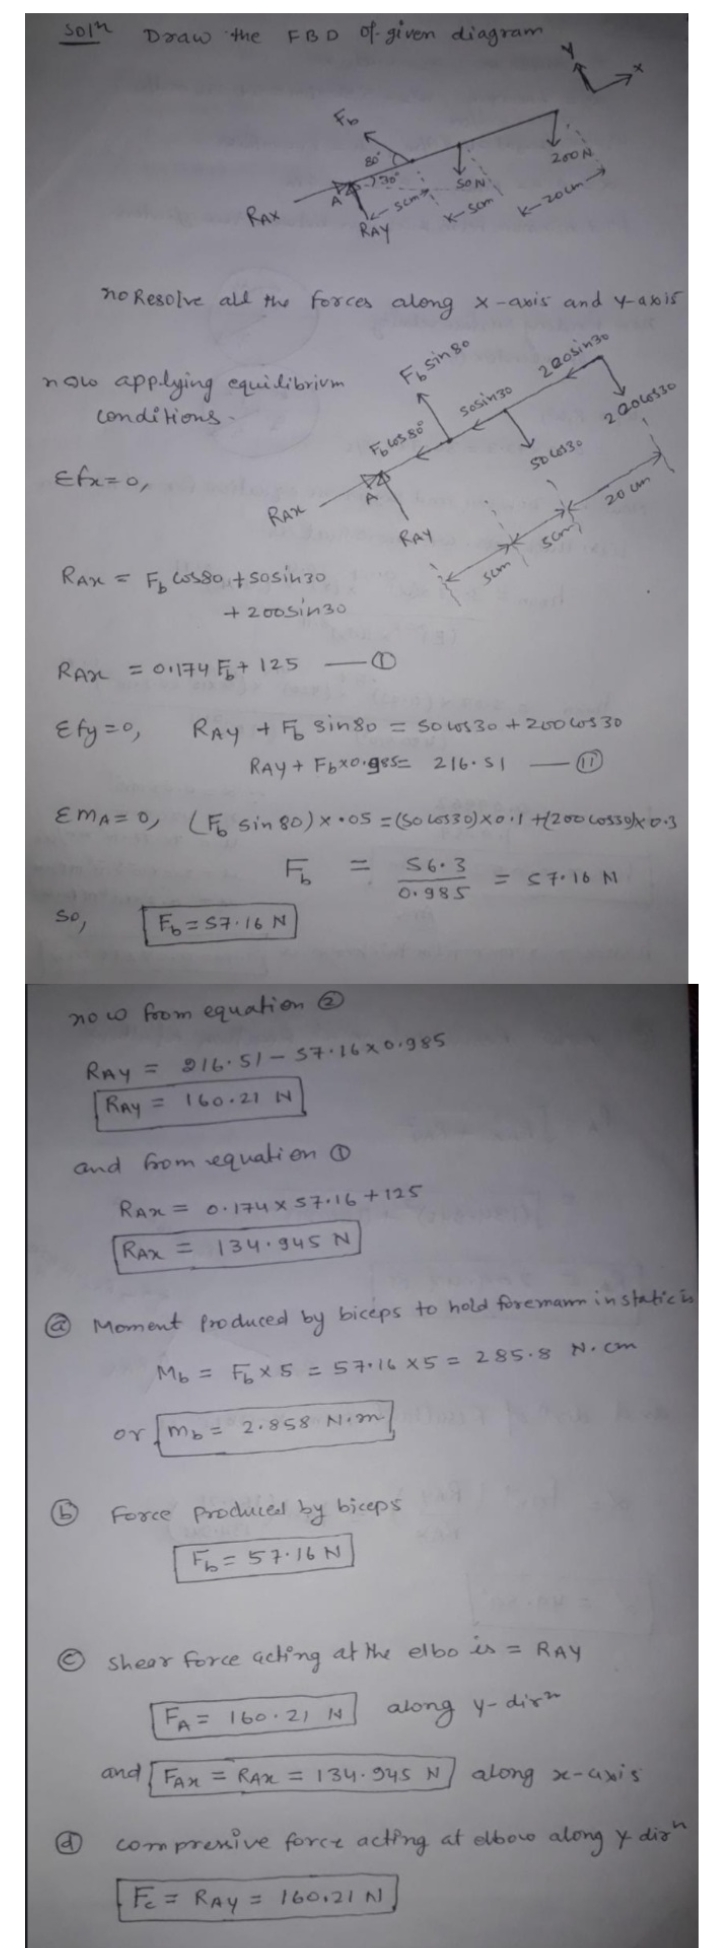 Solⁿ Draw the FBD of given diagram
Y
x
Fb
80°
30°
A
50N
200N
5cm
5cm
20cm
RAX
RAY
no Resolve all the forces along x-axis and y-axis
now applying equilibrium
conditions.
Fb sin80
50sin30
200sin30
Fb cos80°
50cos30
200cos30
A
RAX
RAY
5cm
5cm
20cm
Σfx=0,
RAx = Fb cos80 + 50sin30
+ 200sin30
RAx = 0.174 Fb + 125 — ①
Σfy=0, RAy + Fb sin80 = 50cos30 + 200cos30
RAy + Fb×0.985 = 216.51 — ⑪
ΣmA=0, (Fb sin80)×.05 = (50cos30)×0.1 + (200cos30)×0.3
Fb = 56.3 / 0.985 = 57.16 N
So, Fb = 57.16 N
now from equation ②
RAY = 216.51 - 57.16×0.985
RAY = 160.21 N
and from equation ①
RAx = 0.174×57.16+125
RAX = 134.945 N
ⓐ Moment produced by biceps to hold foremamm in static is
Mb = Fb×5 = 57.16×5 = 285.8 N.cm
or mb = 2.858 N.m
ⓑ Force produced by biceps
Fb = 57.16 N
ⓒ Shear force acting at the elbo is = RAY
FA = 160.21 N along y-dirⁿ
and FAx = RAx = 134.945 N along x-axis
ⓓ compressive force acting at elbow along y dirⁿ
Fc = RAY = 160.21 N